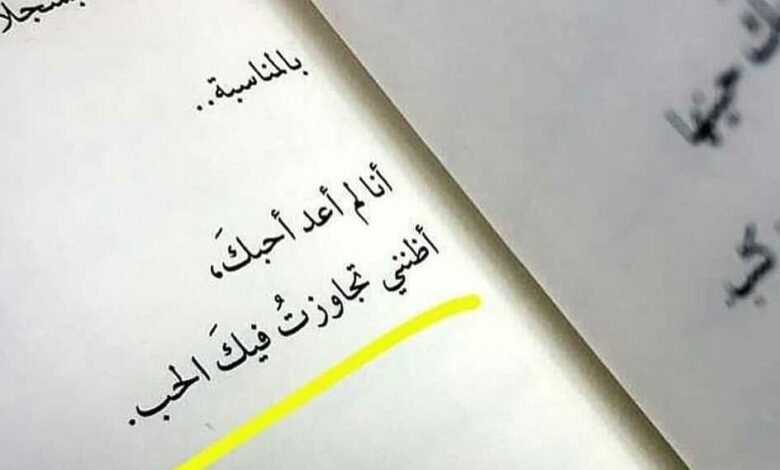 بالمناسبة..
أنا لم أعد أحبكَ،
أظنني تجاوزتُ فيكَ الحب.